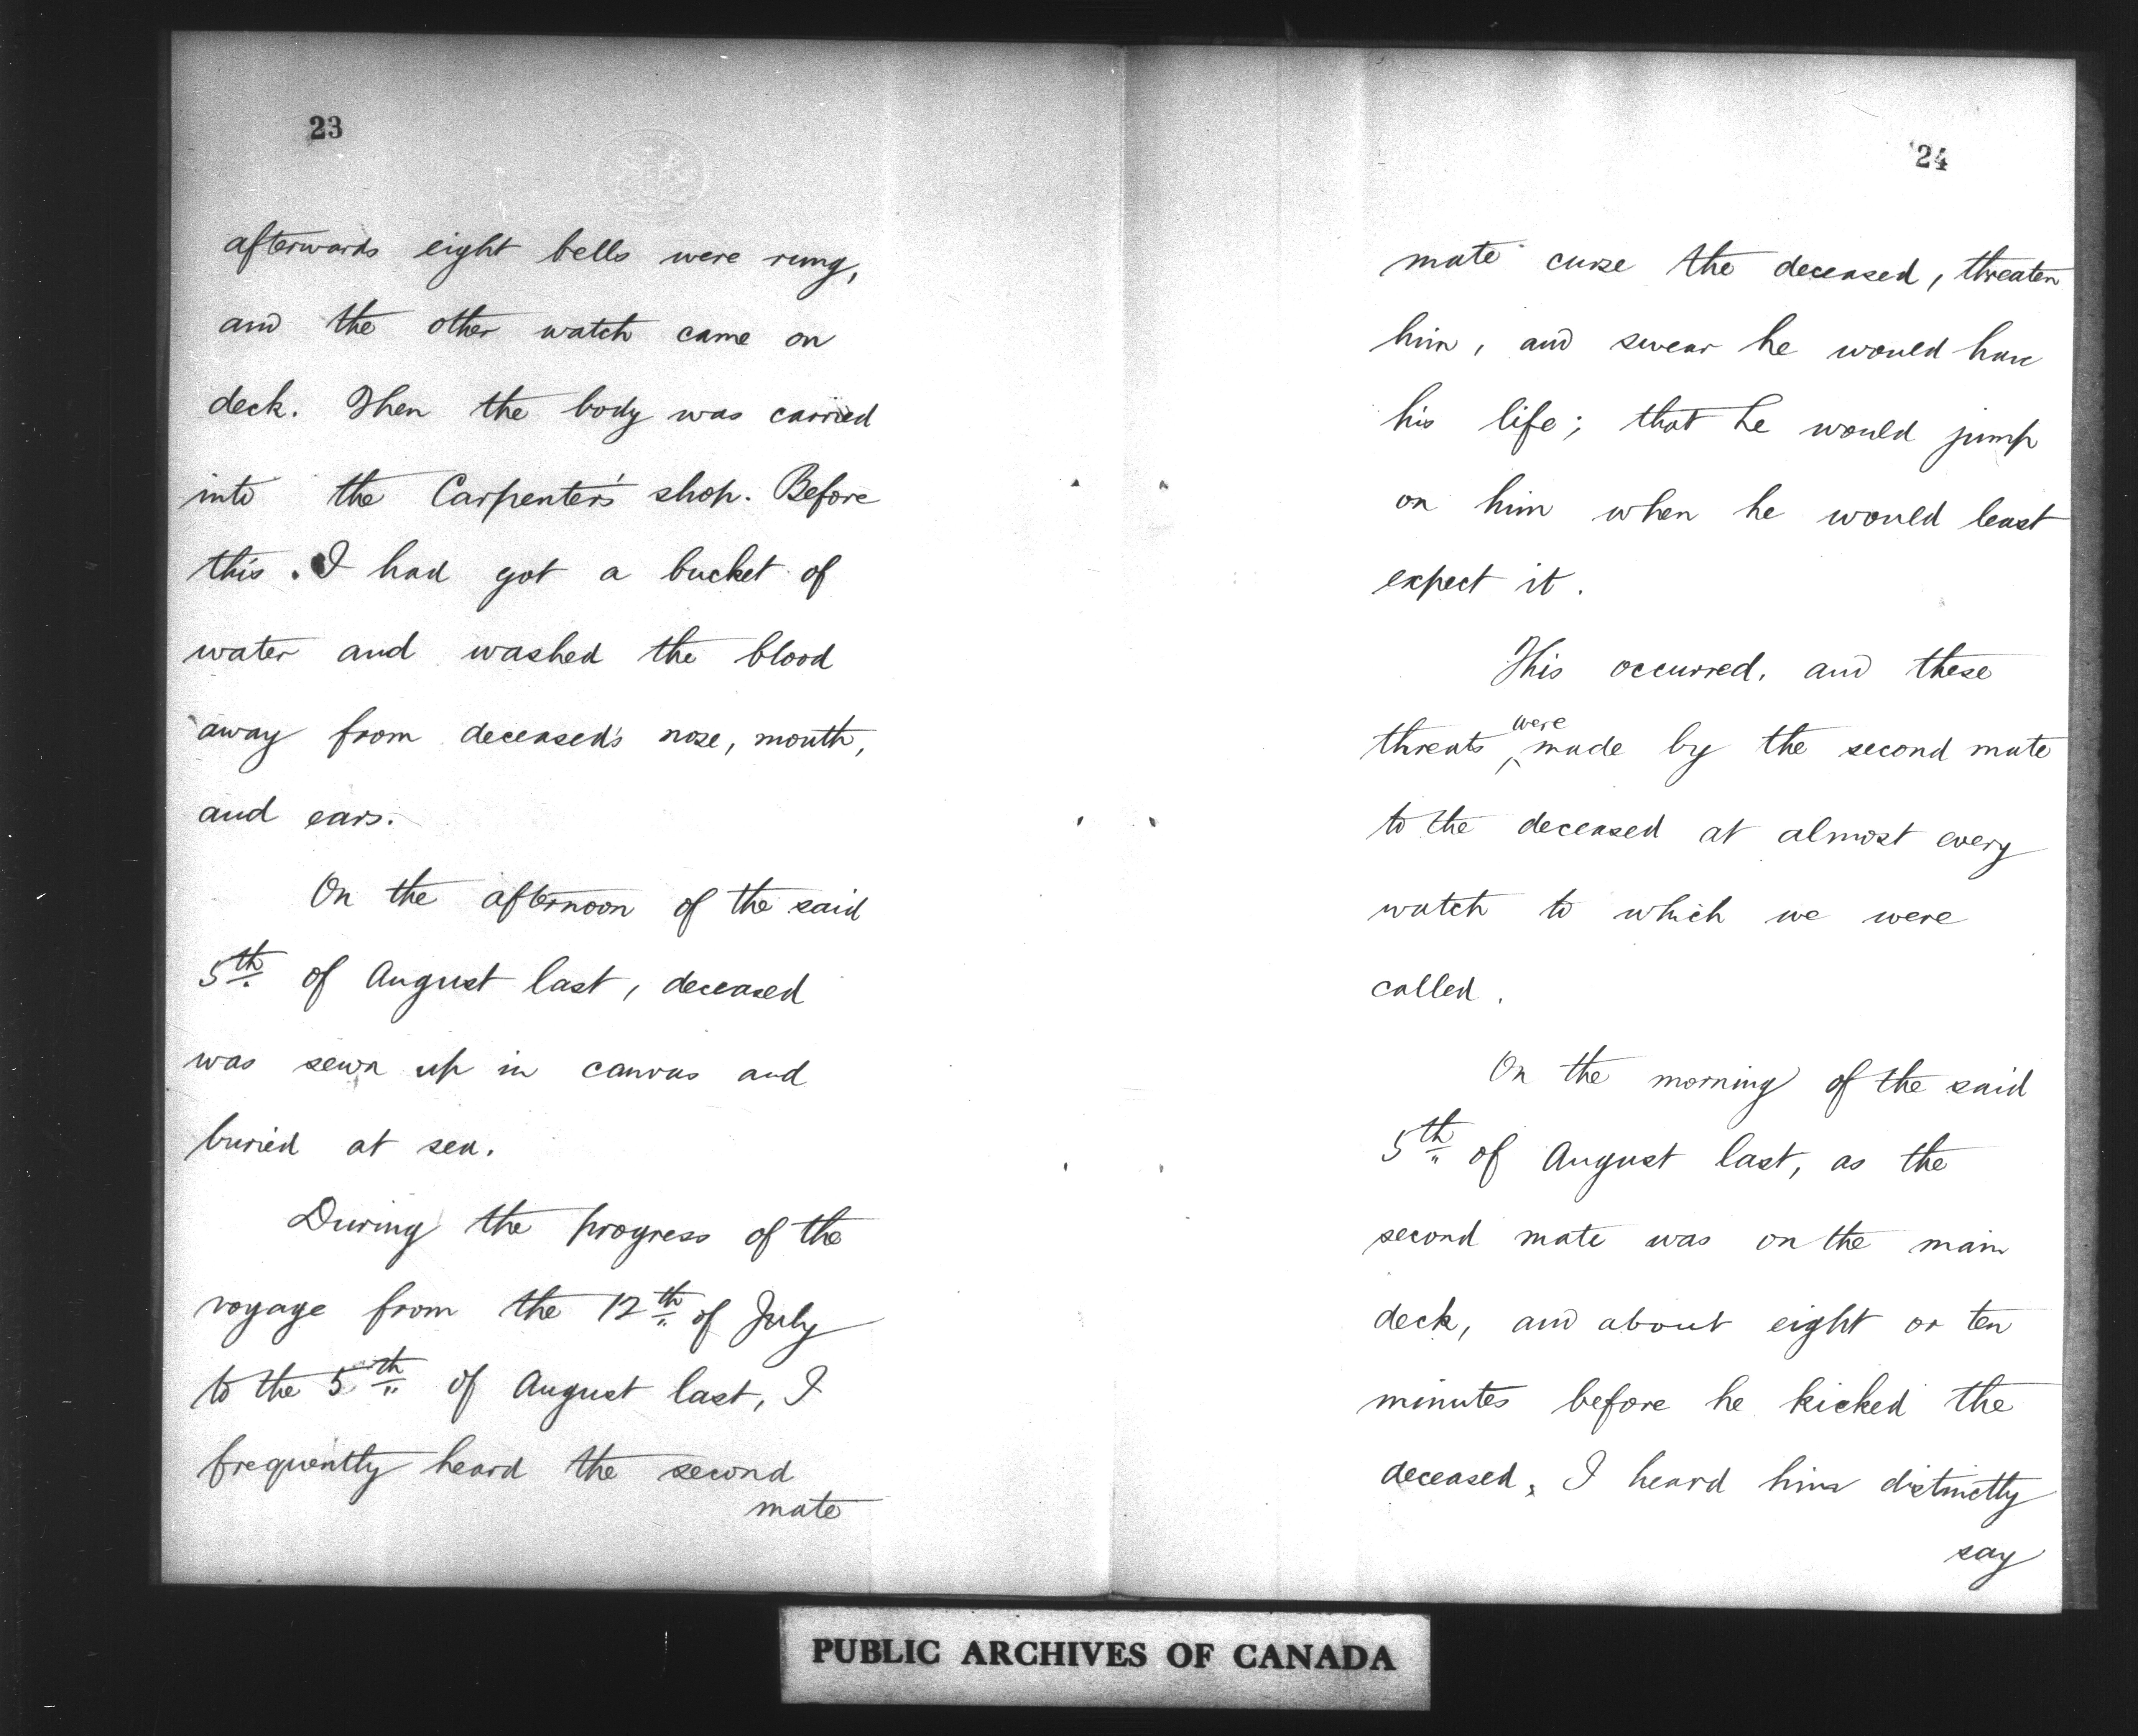 23
afterwards eight bells were rung,
and the other watch came on
deck. Then the body was carried
into the Carpenter's shop. Before
this. I had got a bucket of
water and washed the blood
away from deceased's nose, mouth,
and ears.
On the afternoon of the said
5th of August last, deceased
was sewn up in canvas and
buried at sea.
During the progress of the
voyage from the 12th of July
to the 5th of August last, I
frequently heard the second
mate
24
mate curse the deceased, threaten
him, and swear he would have
his life; that he would jump
on him when he would least
expect it.
This occurred, and these
were
threats made by the second mate
to the deceased at almost every
watch to which we were
called.
On the morning of the said
5th of August last, as the
second mate was on the main
deck, and about eight or ten
minutes before he kicked the
deceased, I heard him distinctly
say
PUBLIC ARCHIVES OF CANADA